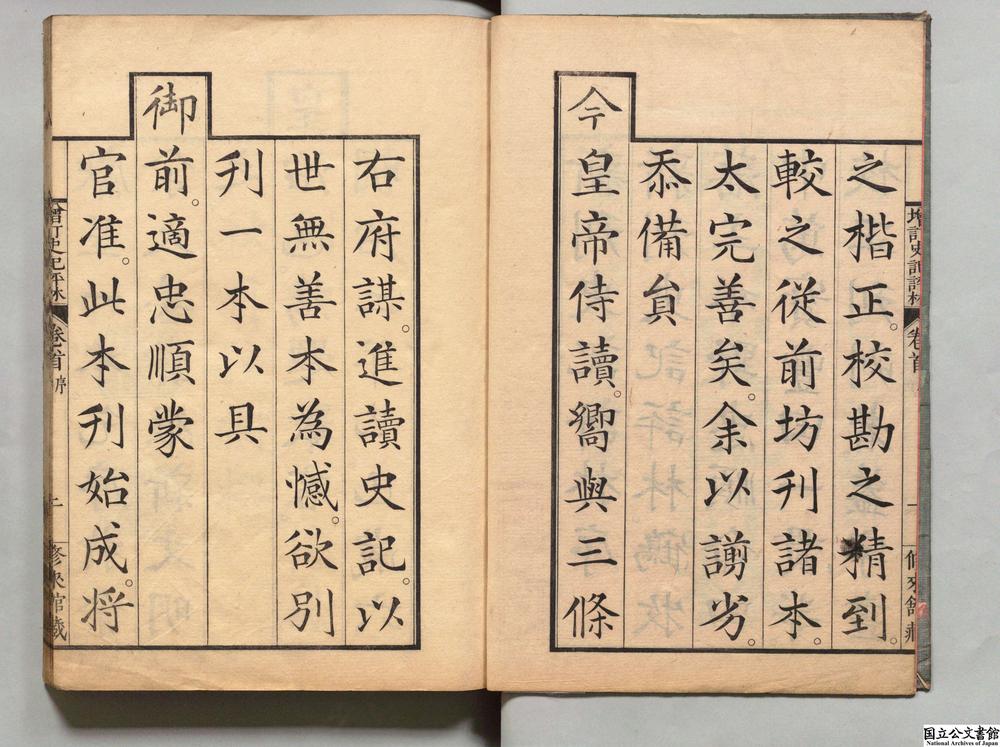 之楷正。校勘之精到。
較之從前坊刊諸本。
太完善矣。余以謭劣。
忝備員
今
皇帝侍讀。嚮與三條
右府謀。進讀史記。以
世無善本為憾。欲別
刊一本以具
御
前。適忠順蒙
官准。此本刊始成。將
增訂史記評林 卷首 一
增訂史記評林 卷首 序 一
國立公文書館
National Archives of Japan